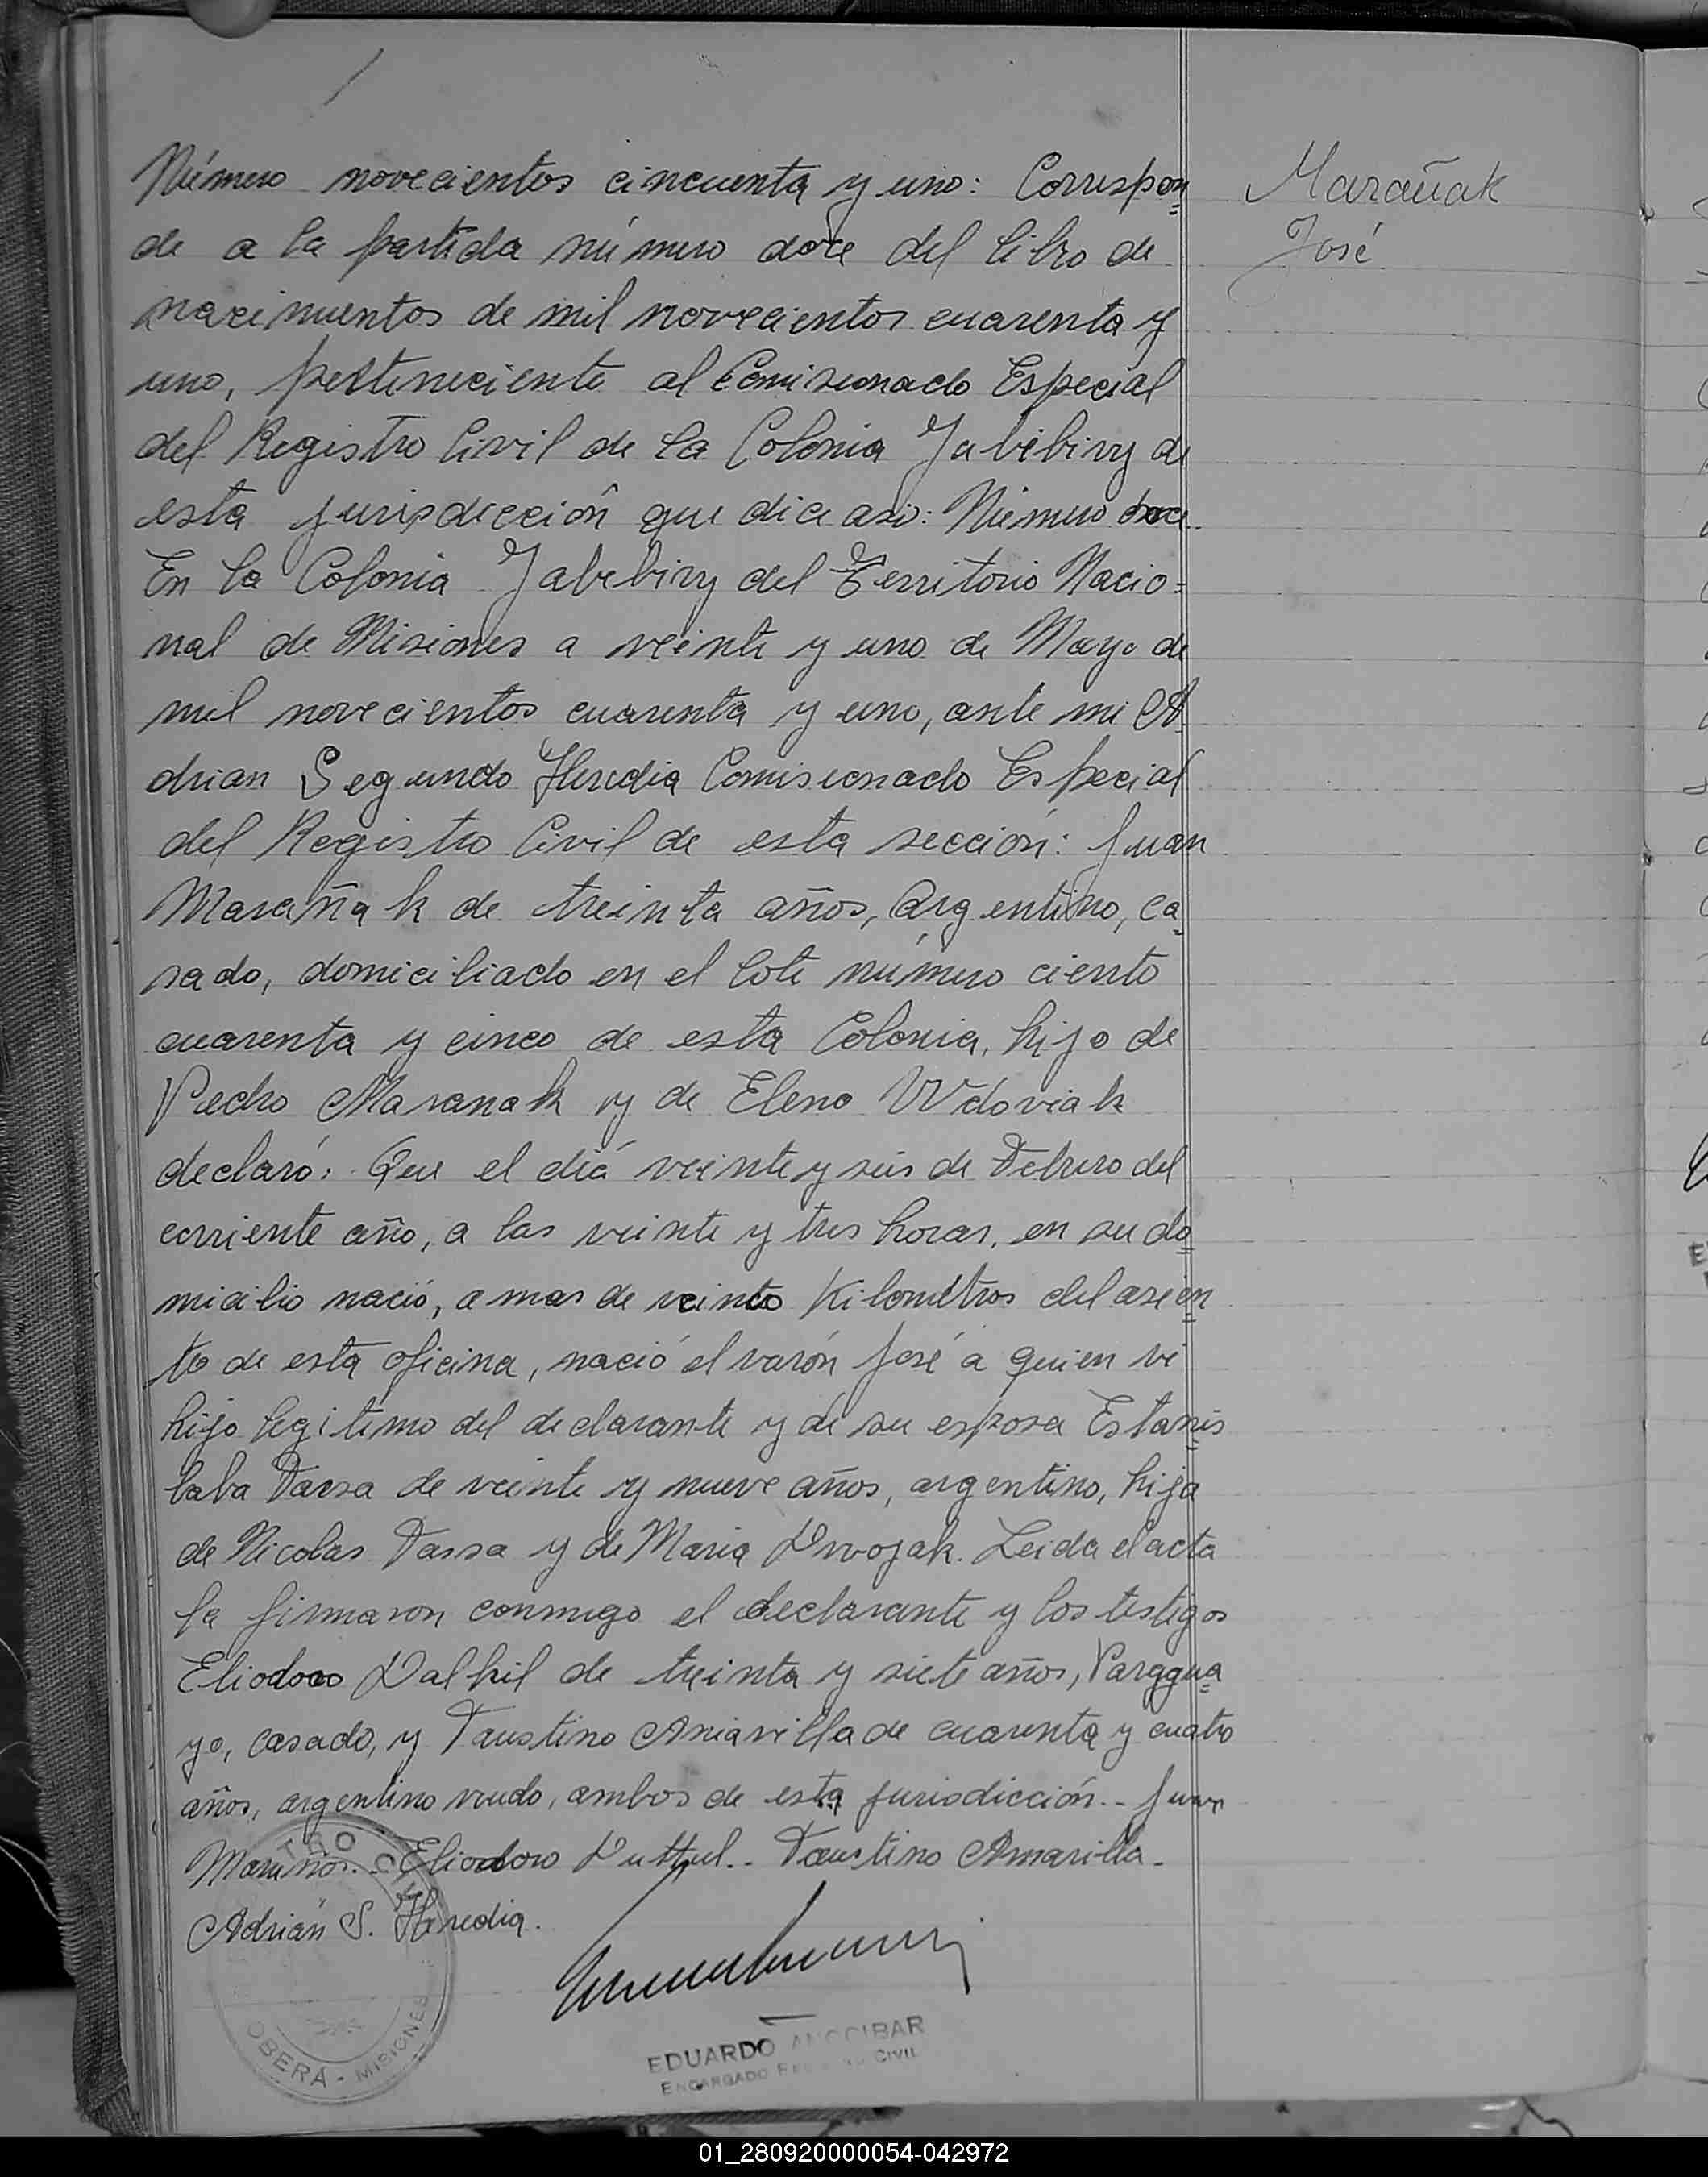 Número novecientos cincuenta y uno: Correspon
de a la partida número doce del libro de
nacimientos de mil novecientos cuarenta y
uno, perteneciente al Comisionado Especial
del Registro Civil de la Colonia Yabebiry de
esta jurisdicción que dice asi: Número doce
En la Colonia Yabebiry del Territorio Nacio=
nal de Misiones a veinte y uno de Mayo de
mil novecientos cuarenta y uno, ante mi A
drian Segundo Heredia Comisionado Especial
del Registro Civil de esta sección: Juan
Marañak de treinta años, Argentino, ca
sado, domiciliado en el lote número ciento
cuarenta y cinco de esta Colonia, hijo de
Pedro Maranak y de Elena Wdoviak
declaró: Que el día veinte y seis de Febrero del
corriente año, a las veinte y tres horas, en su do
micilio nació, a mas de veinte Kilometros del asien
to de esta oficina, nació el varón José a quien vi
hijo legitimo del declarante y de su esposa Estanis
laba de veinte y nueve años, argentino, hija
de Nicolas y de Maria Dwojak. Leida el acta
la firmaron conmigo el declarante y los testigos
Eliodoro de treinta y siete años, Paragua
yo, casado, y Faustino de cuarenta y cuatro
años, argentino viudo, ambos de esta jurisdicción.- Juan
Eliodoro Faustino Amarilla.-
Adrián S. Heredia.
Marañak
José
OBERA - MISIONES
EDUARDO ANCCIBAR
ENCARGADO REGISTRO CIVIL
01_280920000054-042972